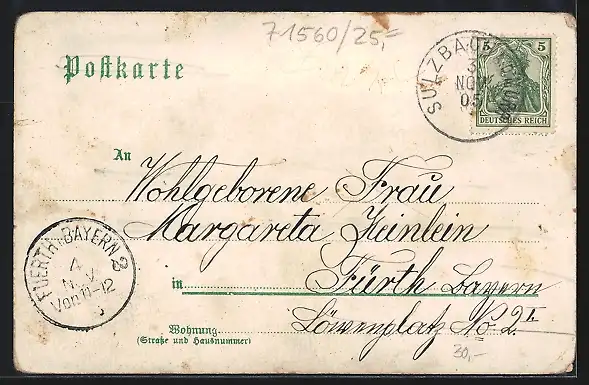 71560/25,=
Postkarte
SULZBACH
3
NOV
05
5
DEUTSCHES REICH
An
Wohlgeborene Frau
Margareta Heinlein
in Fürth Bayern
Wohnung
(Straße und Hausnummer)
Löwenplatz No. 2
30,-
FUERTH-BAYERN 2
Vor. 11-12